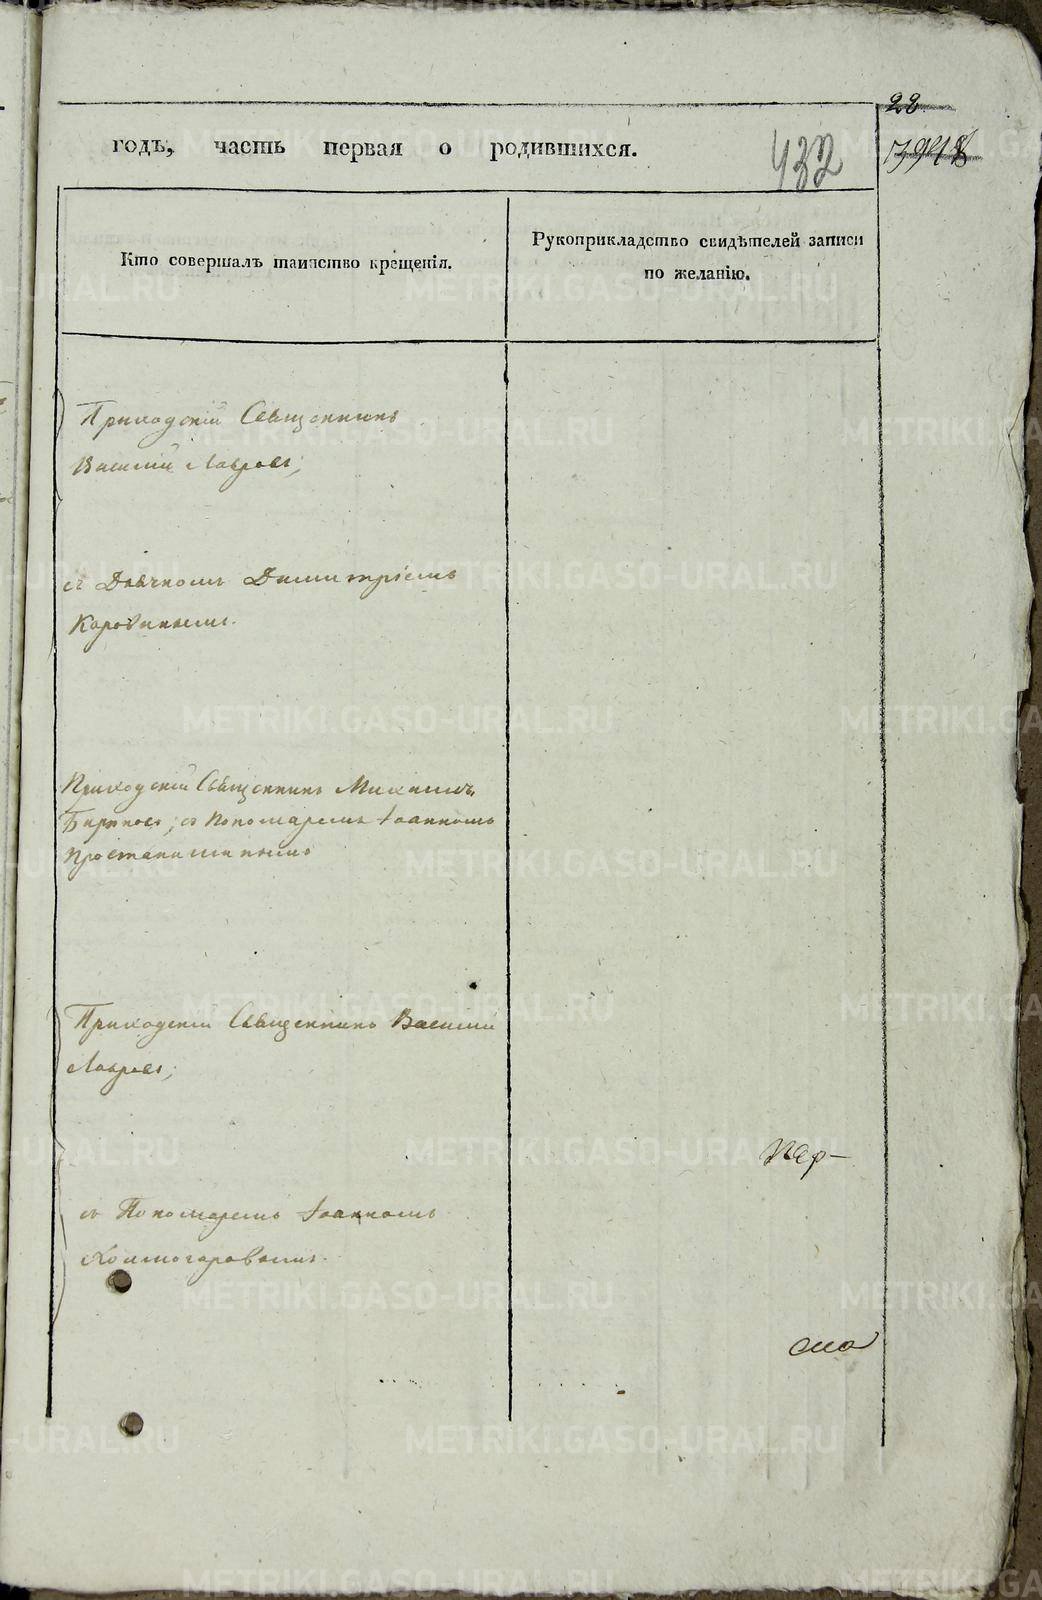 22
годъ, часть первая о родившихся.
432
Кто совершалъ таинство крещенія.
Рукоприкладство свидѣтелей записи
по желанію.
Приходскій Священникъ
Василій Лавровъ;
съ Дьячкомъ Димитріемъ
Коровинымъ.
Приходскій Священникъ Михаилъ
Бирюковъ; съ Пономаремъ Іоанномъ
Приходскій Священникъ Василій
Лавровъ;
съ Пономаремъ Іоанномъ
Колмогоровымъ.
METRIKI.GASO-URAL.RU